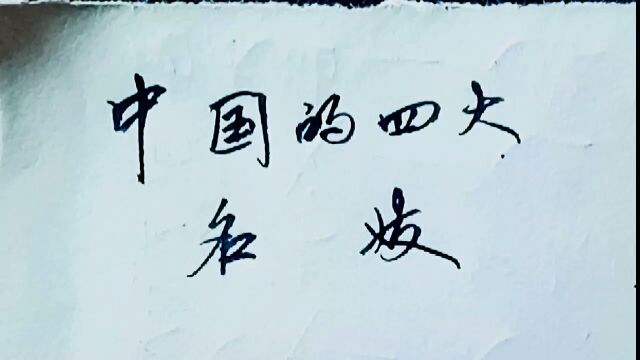 中国的四大
名妓